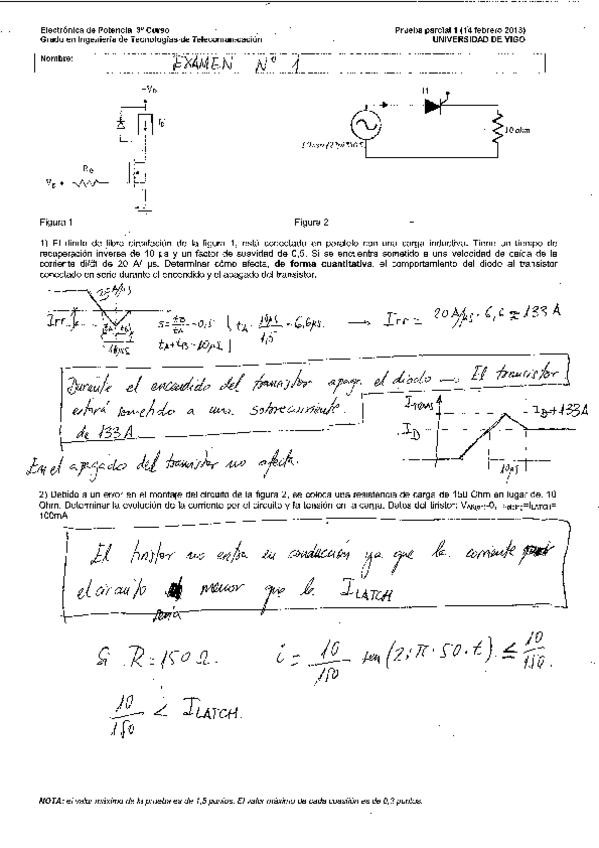 Electrónica de Potencia 3º Curso
Prueba parcial 1 (14 febrero 2013)
Grado en Ingeniería de Tecnologías de Telecomunicación
UNIVERSIDAD DE VIGO
Nombre: EXAMEN Nº 1
T1
10 ohm
Figura 1
Figura 2
1) El diodo de libre circulación de la figura 1, está conectado en paralelo con una carga inductiva. Tiene un tiempo de
recuperación inversa de 10 µs y un factor de suavidad de 0,5. Si se encuentra sometido a una velocidad de caída de la
corriente di/dt de 20 A/ µs. Determinar cómo afecta, de forma cuantitativa, el comportamiento del diodo al transistor
conectado en serie durante el encendido y el apagado del transistor.
Irr
10µs
tA + tB = 10µs
→ Irr = 20 A/µs · 6,6 ≅ 133 A
Durante el encendido del transistor apaga el diodo → El transistor
estará sometido a una sobrecorriente
de 133 A
ID + 133A
ID
10µs
En el apagado del transistor no afecta.
2) Debido a un error en el montaje del circuito de la figura 2, se coloca una resistencia de carga de 150 Ohm en lugar de 10
Ohm. Determinar la evolución de la corriente por el circuito y la tensión en la carga. Datos del tiristor:
100mA
El tiristor no entra en conducción ya que la corriente por
el circuito sería menor que la ILATCH
Si R = 150 Ω. i = 10/150 sen (2·π·50·t) ≤ 10/150.
10/150 < ILATCH.
NOTA: el valor máximo de la prueba es de 1,5 puntos. El valor máximo de cada cuestión es de 0,3 puntos.